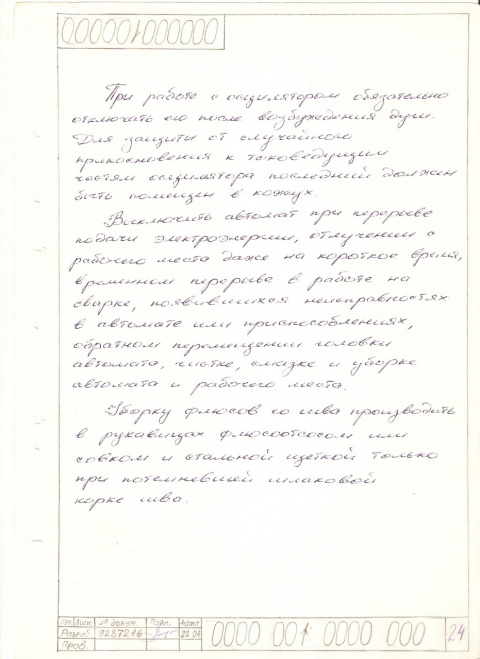 0000001000000
При работе с осцилятором обязательно
отключать его после возбуждения дуги.
Для защиты от случайного
прикосновения к токоведущим
частям осцилятора последний должен
быть помещен в кожух.
Выключить автомат при перерыве
подачи электроэнергии, отлучении с
рабочего места даже на короткое время,
временном перерыве в работе на
сварке, появившихся неисправностях
в автомате или приспособлениях,
обратном перемещении головки
автомата, чистке, смазке и уборке
автомата и рабочего места.
Уборку флюсов со шва производить
в рукавицах флюсоотсосом или
совком и стальной щеткой только
при потемневшей шлаковой
корке шва.
Изм Лист № докум. Подп. Дата
Разраб. 9287216 22.04
Пров.
0000 001 0000 000
24